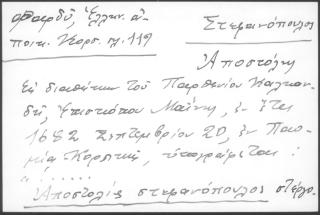 Φαρδύ, Ἑλλην. ἀ-
ποικ. Κορσ. σελ. 119
Στεφανόπουλος
Ἀποστόλης
Ἐν διαθήκῃ τοῦ Παρθενίου Καλκαν-
δῆ, Ἐπισκόπου Μαΐνης, ἐν ἔτει
1682 Σεπτεμβρίου 20, ἐν Παο-
μίᾳ Κορσικῆς, ὑπογράφεται:
"! .....
Ἀποστόλης στεφανόπουλος στέργο.